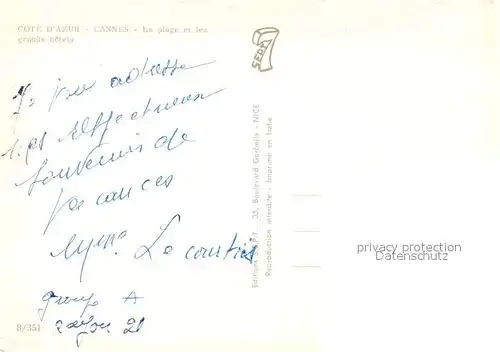 COTE D'AZUR - CANNES - La plage et les
grands hôtels
SEPT
Je vous adresse
mes respectueux
souvenirs de
vacances
Mme. Le
groupe A
rayon 21
8/351
35, Boulevard Gorbella - NICE
Reproduction interdite - Imprimé en Italie
privacy protection
Datenschutz